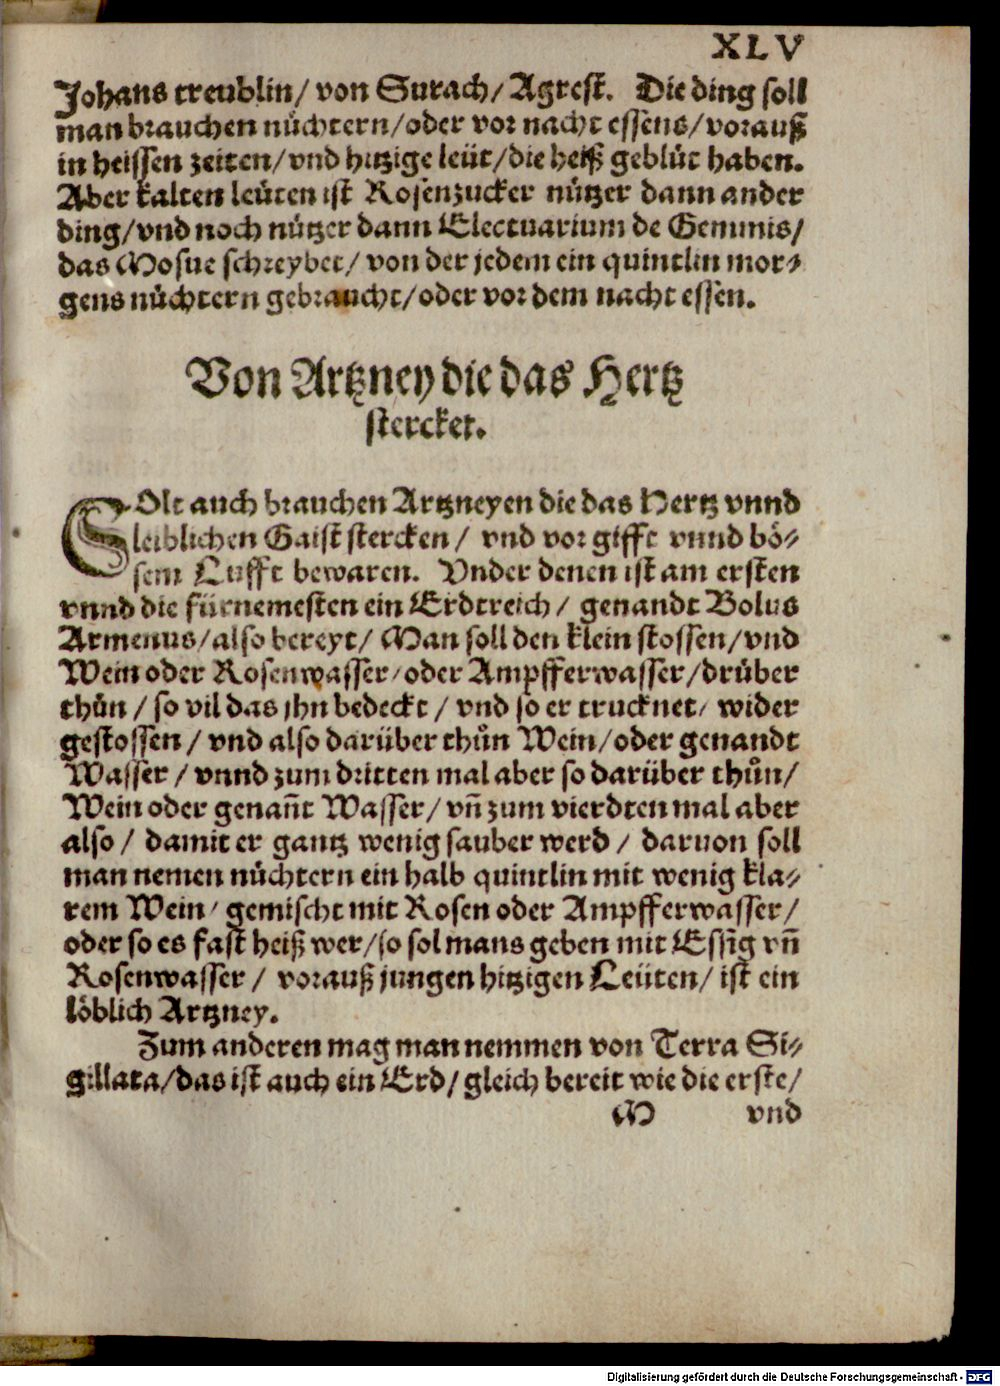 XLV
Johans treublin/ von Surach/ Agrest. Die ding soll
man brauchen nüchtern/oder vor nacht essens/vorauß
in heissen zeiten/vnd hitzige leüt/die heiß geblüt haben.
Aber kalten leüten ist Rosenzucker nützer dann ander
ding/vnd noch nützer dann Electuarium de Gemmis/
das Mosue schreybet/ von der jedem ein quintlin mor-
gens nüchtern gebraucht/oder vor dem nacht essen.
Von Artzney die das Hertz
stercket.
SOlt auch brauchen Artzneyen die das Hertz vnnd
leiblichen Gaist stercken/ vnd vor gifft vnnd bö-
sem Lufft bewaren. Vnder denen ist am ersten
vnnd die fürnemesten ein Erdtreich/ genandt Bolus
Armenus/also bereyt/ Man soll den klein stossen/vnd
Wein oder Rosenwasser/oder Ampfferwasser/drüber
thůn/ so vil das jhn bedeckt/ vnd so er trucknet/ wider
gestossen/ vnd also darüber thůn Wein/oder genandt
Wasser/ vnnd zum dritten mal aber so darüber thůn/
Wein oder genañt Wasser/ vñ zum vierdten mal aber
also/ damit er gantz wenig sauber werd/ daruon soll
man nemen nüchtern ein halb quintlin mit wenig kla-
rem Wein/ gemischt mit Rosen oder Ampfferwasser/
oder so es fast heiß wer/so sol mans geben mit Essig vñ
Rosenwasser/ vorauß jungen hitzigen Leüten/ ist ein
löblich Artzney.
Zum anderen mag man nemmen von Terra Si-
gillata/das ist auch ein Erd/gleich bereit wie die erste/
M vnd
Digitalisierung gefördert durch die Deutsche Forschungsgemeinschaft - DFG